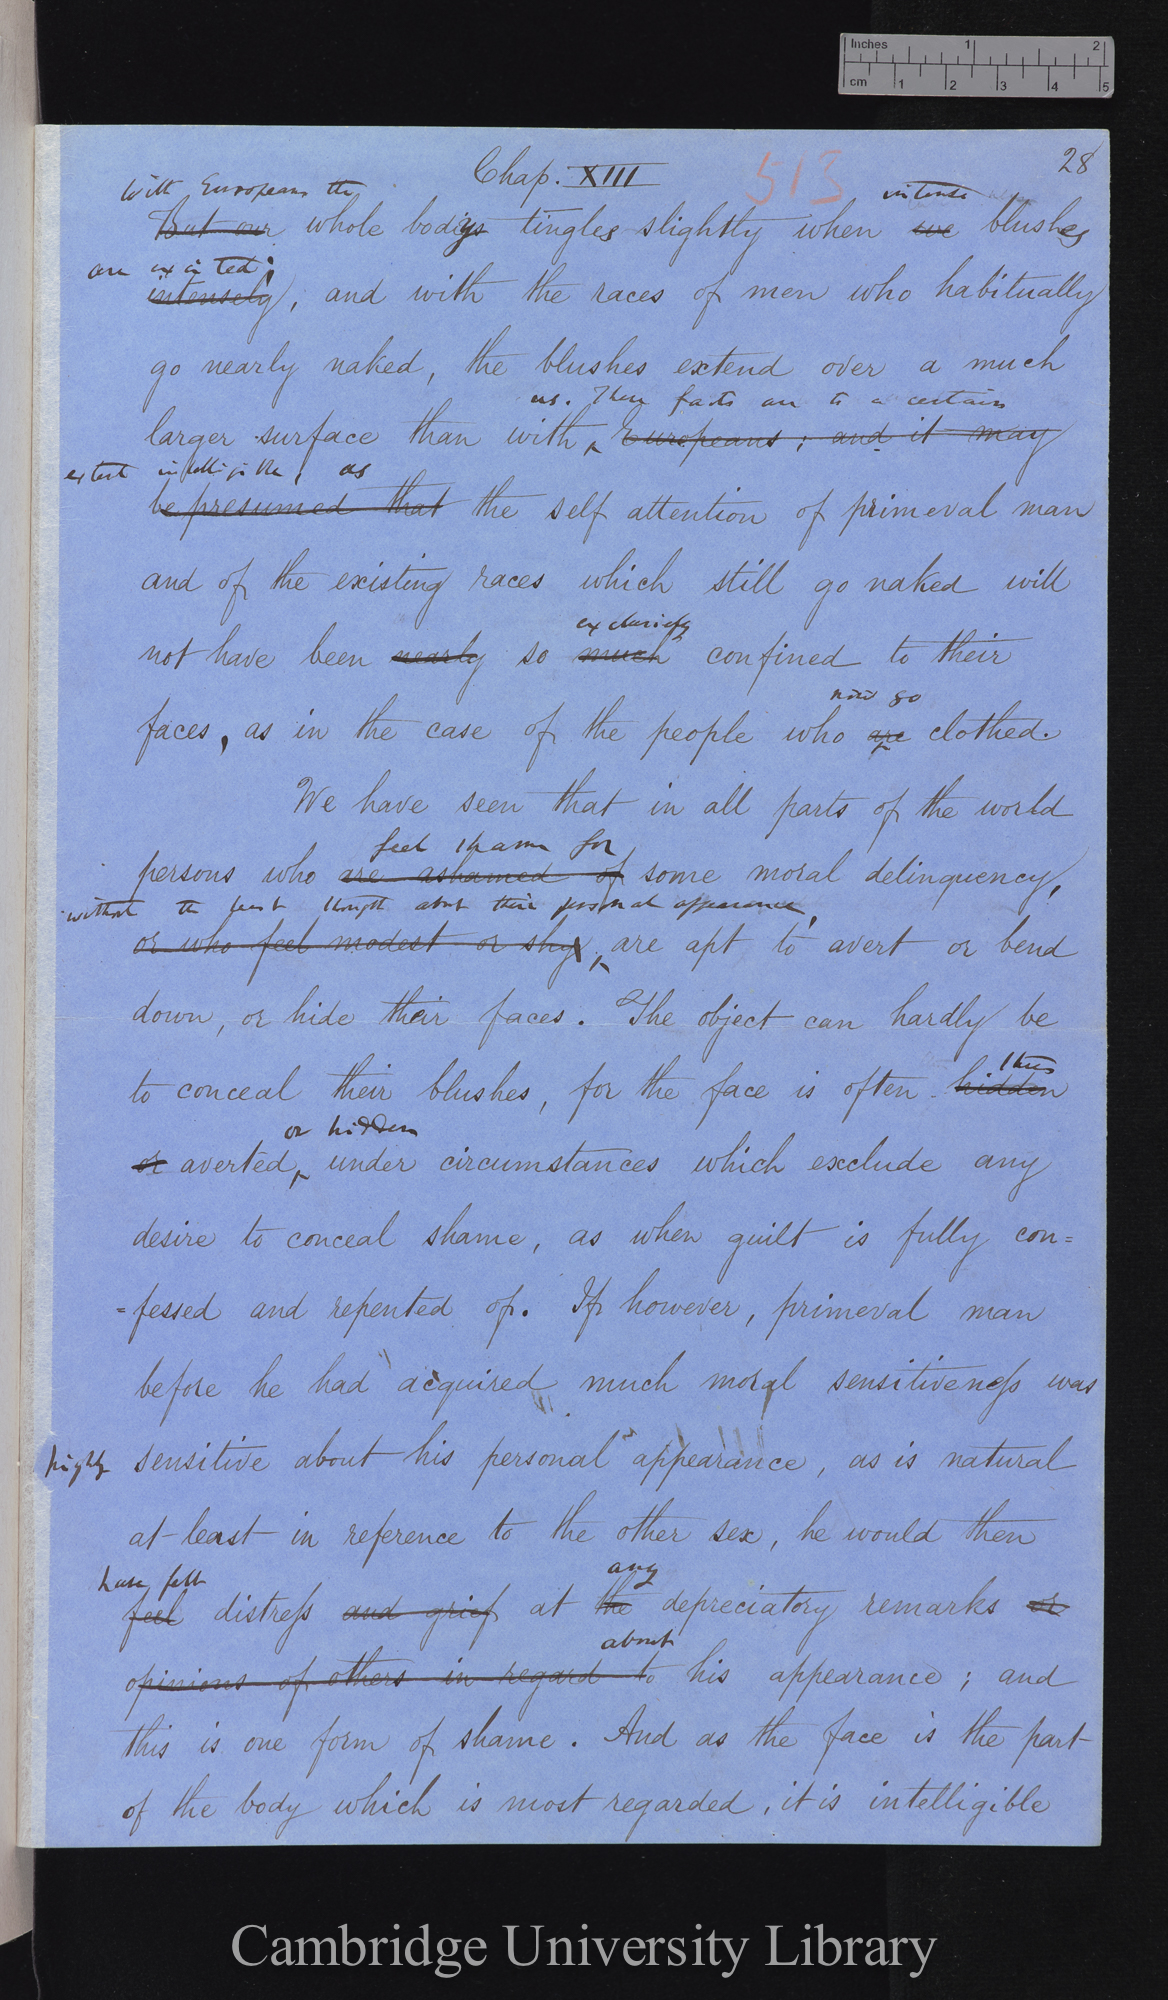 Inches 1 2
cm 1 2 3 4 5
28
Chap. XIII 513
With Europeans the intense
But our whole bodys tingles slightly when we blushes
are excited;
intensely, and with the races of men who habitually
go nearly naked, the blushes extend over a much
us. These facts are to a certain
larger surface than with Europeans; and it may
extent intelligible, as
be presumed that the self attention of primeval man
and of the existing races which still go naked will
exclusively
not have been nearly so much confined to their
now go
faces, as in the case of the people who are clothed.
We have seen that in all parts of the world
feel shame for
persons who are ashamed of some moral delinquency,
without the least thought about their personal appearance,
or who feel modest or shy, are apt to avert or bend
down, or hide their faces. The object can hardly be
thus
to conceal their blushes, for the face is often hidden
or hidden
or averted, under circumstances which exclude any
desire to conceal shame, as when guilt is fully con=
=fessed and repented of. If however, primeval man
before he had acquired much moral sensitiveness was
highly sensitive about his personal appearance, as is natural
at least in reference to the other sex, he would then
have felt any
feel distress and grief at the depreciatory remarks or
about
opinions of others in regard to his appearance; and
this is one form of shame. And as the face is the part
of the body which is most regarded, it is intelligible
Cambridge University Library